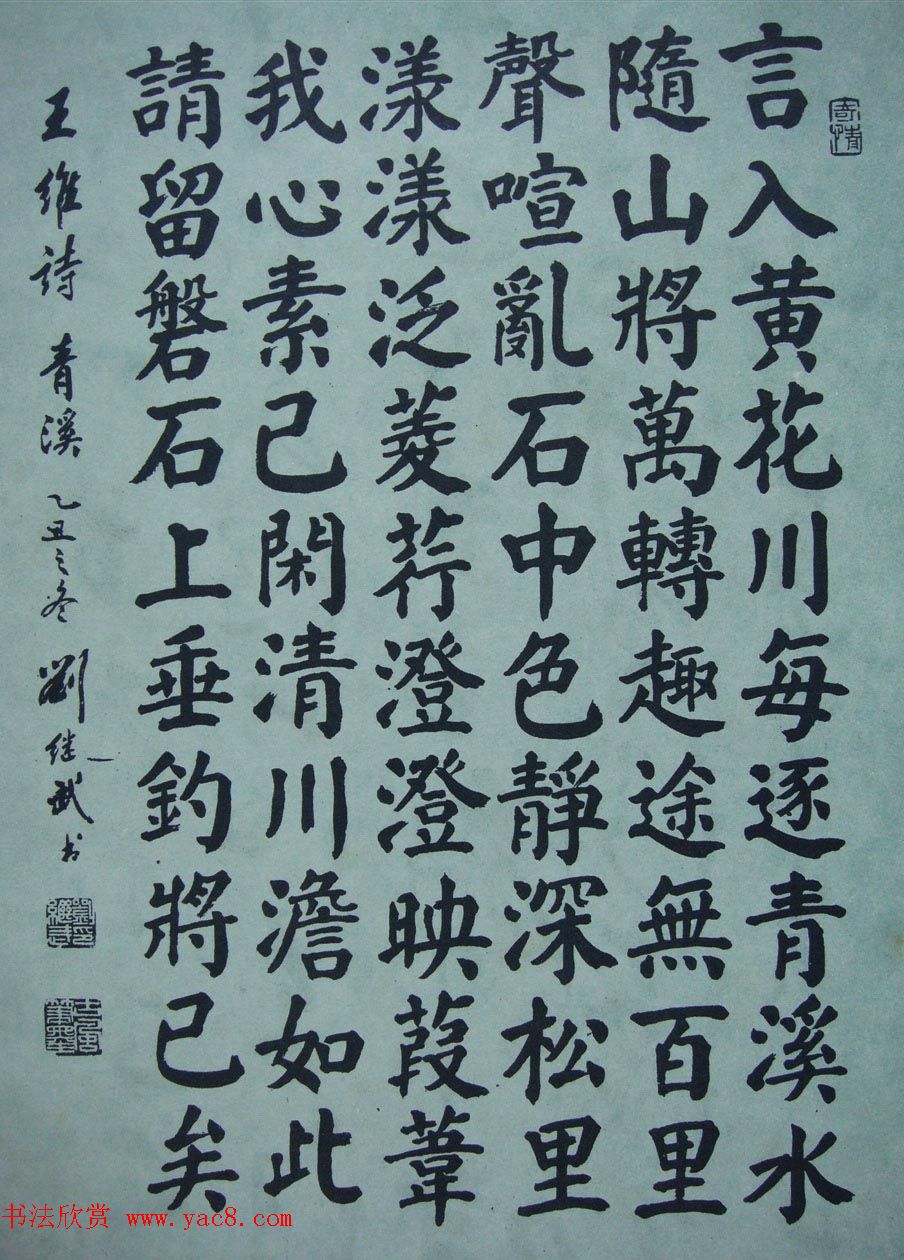 言入黄花川每逐青溪水
隨山將萬轉趣途無百里
聲喧亂石中色靜深松里
漾漾泛菱荇澄澄映葭葦
我心素已閑清川澹如此
請留磐石上垂釣將已矣
王維詩 青溪 乙丑之冬 劉继武书
寄情
书法欣赏 www.yac8.com